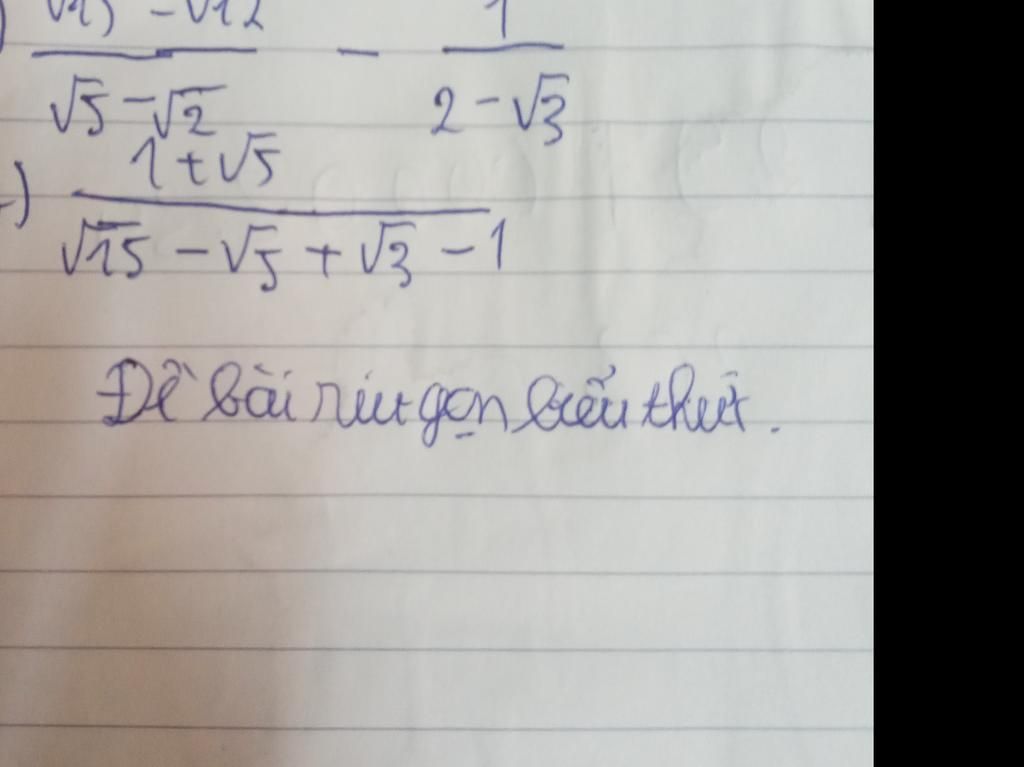 √12
√5 - √2 - 1 / (2 - √3)
) (1 + √5) / (√15 - √5 + √3 - 1)
Đề bài rút gọn biểu thức.